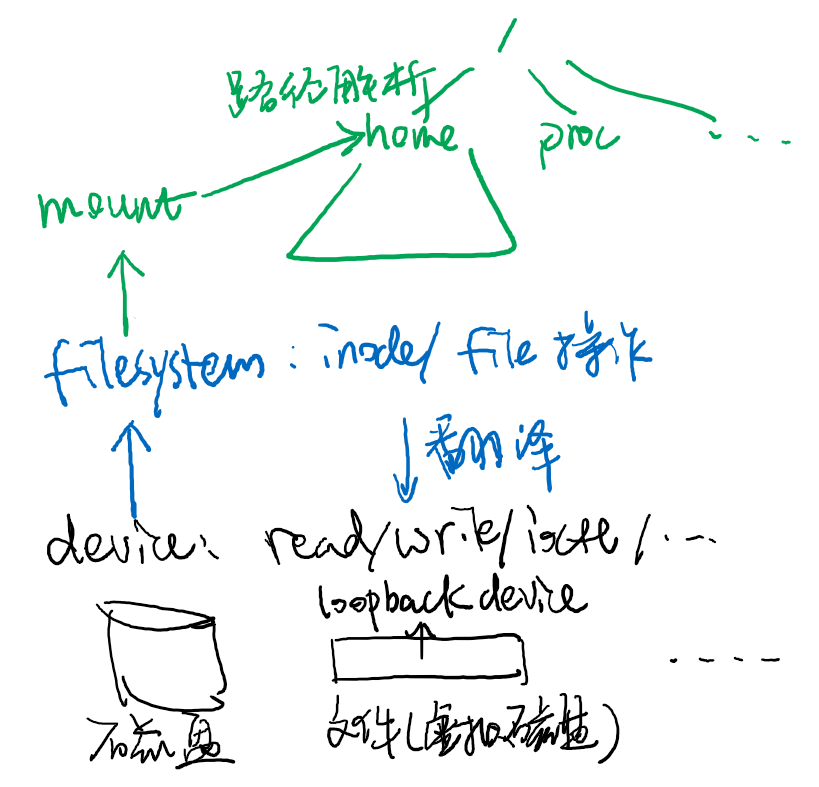 /
路径解析
home proc ...
mount
filesystem: inode/ file 操作
翻译
device: read/write/ioctl/...
loopback device
....
磁盘 文件(虚拟磁盘)